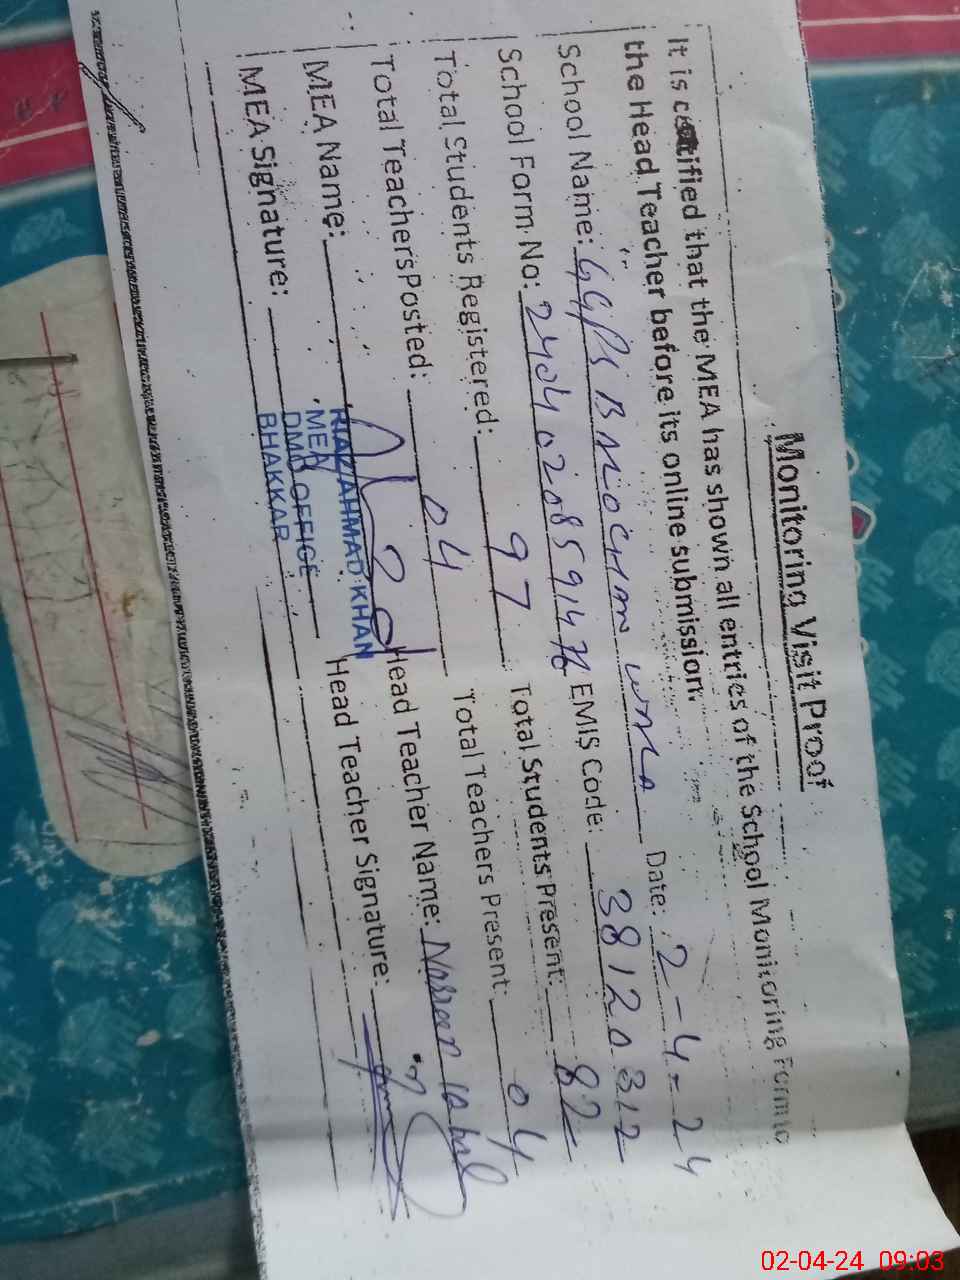 Monitoring Visit Proof
It is certified that the MEA has shown all entries of the School Monitoring Form to
the Head Teacher before its online submission.
School Name: GGPS Date: 2-4-24
School Form No: EMIS Code: 38120312
Total Students Registered: 97 Total Students Present: 82
Total Teachers Posted: 04 Total Teachers Present: 04
MEA Name: Head Teacher Name:
MEA Signature: Head Teacher Signature:
RIAZ AHMAD KHAN
MEA
DMO OFFICE
BHAKKAR
02-04-24 09:03